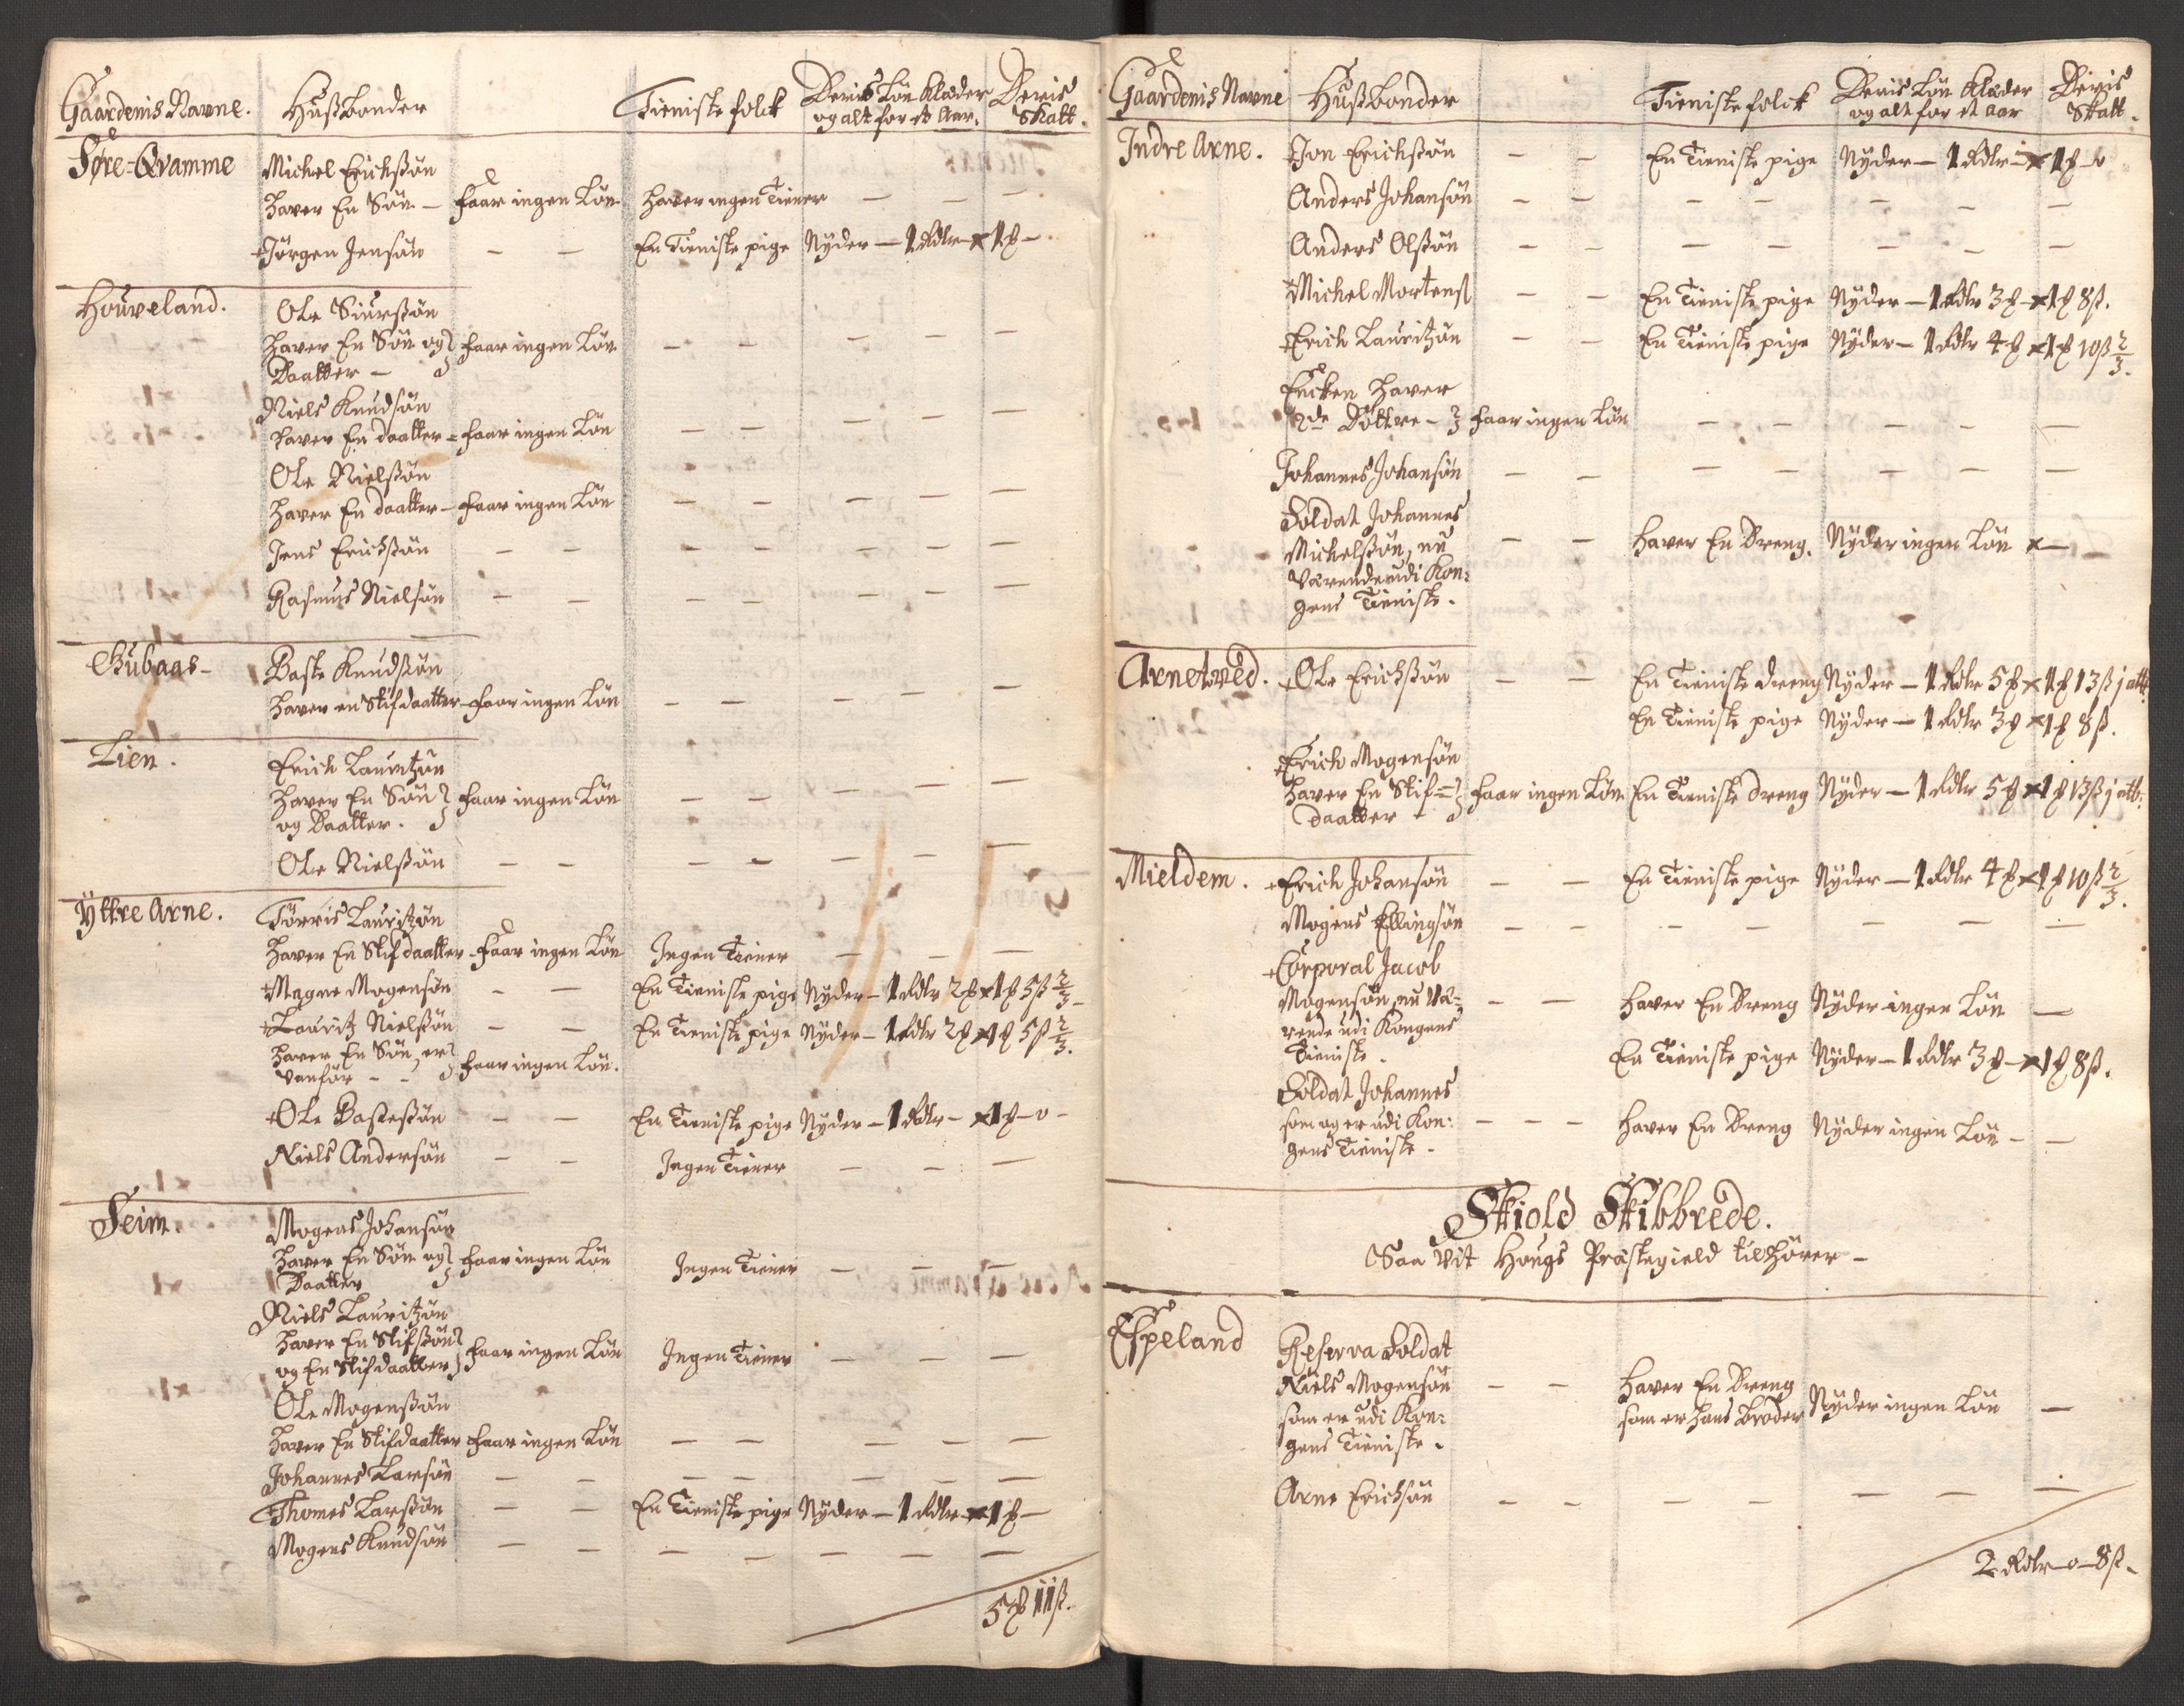 Gaardenis Navne. Hußbonder Tieniste folck Deris Løn Klæder og alt for et Aar. Deris Skatt.
Søre-Qvamme Michel Erichssøn
haver En Søn – faar ingen Løn haver ingen Tiener – – –
Jørgen Jensøn – – En Tieniste pige Nyder – 1 Rdlr – x 1 ƺ –
Houveland. Ole Siurssøn
haver En Søn og faar ingen Løn – – – – –
Daatter –
Niels Knudsøn
haver En daatter = faar ingen Løn – – – – –
Ole Nielssøn
haver En daatter – faar ingen Løn – – – – –
Jens Erichssøn – – – – – – –
Rasmus Nielsøn – – – – – – –
Gubaas – Baste Knudssøn
haver en Stifdaatter – faar ingen Løn – – – – –
Lien. Erich Lauritzøn
haver En Søn faar ingen Løn – – – – –
og Daatter.
Ole Nielssøn – – – – – – –
Yttre Arne. Torris Lauritzøn
haver En Stifdaatter – faar ingen Løn Ingen Tiener – – –
Magne Mogensøn – – En Tieniste pige Nyder – 1 Rdlr 2 ƺ x 1 ƺ 5 ß 2/3 –
Lauritz Nielssøn – – En Tieniste pige Nyder – 1 Rdlr 2 ƺ x 1 ƺ 5 ß 2/3.
haver En Søn, er
vanfør – – faar ingen Løn.
Ole Bastessøn – – En Tieniste pige Nyder – 1 Rdlr – x 1 ƺ – 0 –
Niels Andersøn – – Ingen Tiener – – –
Seim. Mogens Johansøn
haver En Søn og faar ingen Løn Ingen Tiener – – –
Daatter
Niels Lauritzøn
haver En Stifssøn
og En Stifdaatter faar ingen Løn Ingen Tiener – – –
Ole Mogenssøn
haver En Stifdaatter faar ingen Løn – – – – –
Johannes Larsøn – – – – – – –
Thomes Larssøn – – En Tieniste pige Nyder – 1 Rdlr – x 1 ƺ –
Mogens Knudsøn – – – – – – –
5 ƺ 11 ß.
Gaardenis Navne Hußbonder Tieniste folck Deris Løn Klæder og alt for et aar Deris Skatt.
Indre Arne. Jon Erichssøn – – En Tieniste pige Nyder – 1 Rdlr – x 1 ƺ – 0
Anders Johansøn – – – – – – –
Anders Olssøn – – – – – – –
Michel Mortens – – En Tieniste pige Nyder – 1 Rdlr 3 ƺ – x 1 ƺ 8 ß.
Erich Lauritzøn – – En Tieniste pige Nyder – 1 Rdlr 4 ƺ x 1 ƺ 10 ß 2/3.
Encken haver
2de Døttre – faar ingen Løn – – – – –
Johannes Johansøn – – – – – – –
Soldat Johannes
Michelssøn, nu – – haver En Dreng. Nyder ingen Løn x –
Værende udi Kon:
gens Tieniste.
Arnetved. Ole Erichssøn – – En Tieniste dreng Nyder – 1 Rdlr 5 ƺ x 1 ƺ 13 ß j alb.
En Tieniste pige Nyder – 1 Rdlr 3 ƺ x 1 ƺ 8 ß.
Erich Mogensøn
haver En Stif= faar ingen Løn En Tieniste dreng Nyder – 1 Rdlr 5 ƺ x 1 ƺ 13 ß j alb:
daatter –
Mieldem. Erich Johansøn – – En Tieniste pige Nyder – 1 Rdlr 4 ƺ x 1 ƺ 10 ß 2/3.
Mogens Ellingsøn – – – – – – –
Corporal Jacob
Mogensøn, nu Væ= – – haver En Dreng Nyder ingen Løn –
rende udi Kongens
Tieniste. En Tieniste pige Nyder – 1 Rdlr 3 ƺ – x 1 ƺ 8 ß.
Soldat Johannes
som og er udi Kon: – – – haver En Dreng Nyder ingen Løn – –
gens Tieniste.
Skiold Skibbrede.
Saa vit Hougs Præstegield tilhører –
Espeland Reserva Soldat
Niels Mogensøn – – haver En Dreng
som er udi Kon: som er hans broder Nyder ingen Løn –
gens Tieniste.
Arne Erichsøn – – – – – – –
2 Rdlr – 0 – 8 ß.